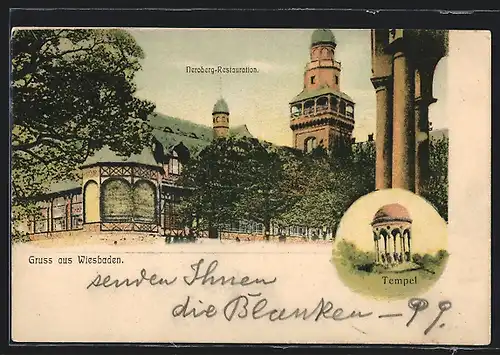 Neroberg-Restauration.
Gruss aus Wiesbaden.
Tempel
senden Ihnen
die Blanken – 99.